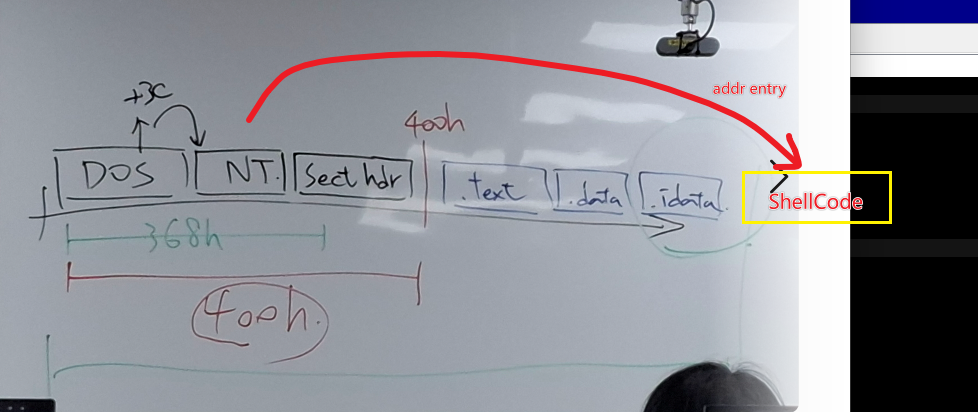 +3C
addr entry
400h
DOS NT. Sect hdr .text .data .idata
ShellCode
368h
400h.